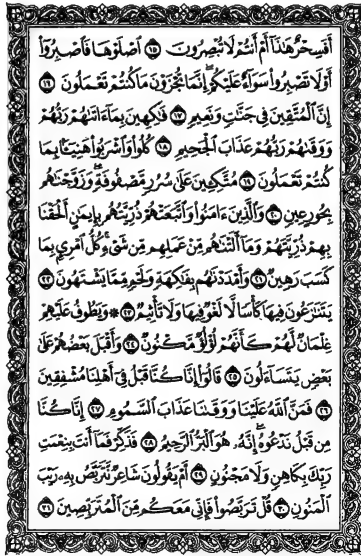 أَفَسِحْرٌ هَٰذَآ أَمْ أَنتُمْ لَا تُبْصِرُونَ ١٥ ٱصْلَوْهَا فَٱصْبِرُوٓا۟
أَوْ لَا تَصْبِرُوا۟ سَوَآءٌ عَلَيْكُمْ ۖ إِنَّمَا تُجْزَوْنَ مَا كُنتُمْ تَعْمَلُونَ ١٦
إِنَّ ٱلْمُتَّقِينَ فِى جَنَّٰتٍ وَنَعِيمٍ ١٧ فَٰكِهِينَ بِمَآ ءَاتَىٰهُمْ رَبُّهُمْ
وَوَقَىٰهُمْ رَبُّهُمْ عَذَابَ ٱلْجَحِيمِ ١٨ كُلُوا۟ وَٱشْرَبُوا۟ هَنِيٓـًٔۢا بِمَا
كُنتُمْ تَعْمَلُونَ ١٩ مُتَّكِـِٔينَ عَلَىٰ سُرُرٍ مَّصْفُوفَةٍ ۖ وَزَوَّجْنَٰهُم
بِحُورٍ عِينٍ ٢٠ وَٱلَّذِينَ ءَامَنُوا۟ وَٱتَّبَعَتْهُمْ ذُرِّيَّتُهُم بِإِيمَٰنٍ أَلْحَقْنَا
بِهِمْ ذُرِّيَّتَهُمْ وَمَآ أَلَتْنَٰهُم مِّنْ عَمَلِهِم مِّن شَىْءٍ ۚ كُلُّ ٱمْرِئٍۭ بِمَا
كَسَبَ رَهِينٌ ٢١ وَأَمْدَدْنَٰهُم بِفَٰكِهَةٍ وَلَحْمٍ مِّمَّا يَشْتَهُونَ ٢٢
يَتَنَٰزَعُونَ فِيهَا كَأْسًا لَّا لَغْوٌ فِيهَا وَلَا تَأْثِيمٌ ٢٣ ۞ وَيَطُوفُ عَلَيْهِمْ
غِلْمَانٌ لَّهُمْ كَأَنَّهُمْ لُؤْلُؤٌ مَّكْنُونٌ ٢٤ وَأَقْبَلَ بَعْضُهُمْ عَلَىٰ
بَعْضٍ يَتَسَآءَلُونَ ٢٥ قَالُوٓا۟ إِنَّا كُنَّا قَبْلُ فِىٓ أَهْلِنَا مُشْفِقِينَ
٢٦ فَمَنَّ ٱللَّهُ عَلَيْنَا وَوَقَىٰنَا عَذَابَ ٱلسَّمُومِ ٢٧ إِنَّا كُنَّا
مِن قَبْلُ نَدْعُوهُ ۖ إِنَّهُۥ هُوَ ٱلْبَرُّ ٱلرَّحِيمُ ٢٨ فَذَكِّرْ فَمَآ أَنتَ بِنِعْمَتِ
رَبِّكَ بِكَاهِنٍ وَلَا مَجْنُونٍ ٢٩ أَمْ يَقُولُونَ شَاعِرٌ نَّتَرَبَّصُ بِهِۦ رَيْبَ
ٱلْمَنُونِ ٣٠ قُلْ تَرَبَّصُوا۟ فَإِنِّى مَعَكُم مِّنَ ٱلْمُتَرَبِّصِينَ ٣١